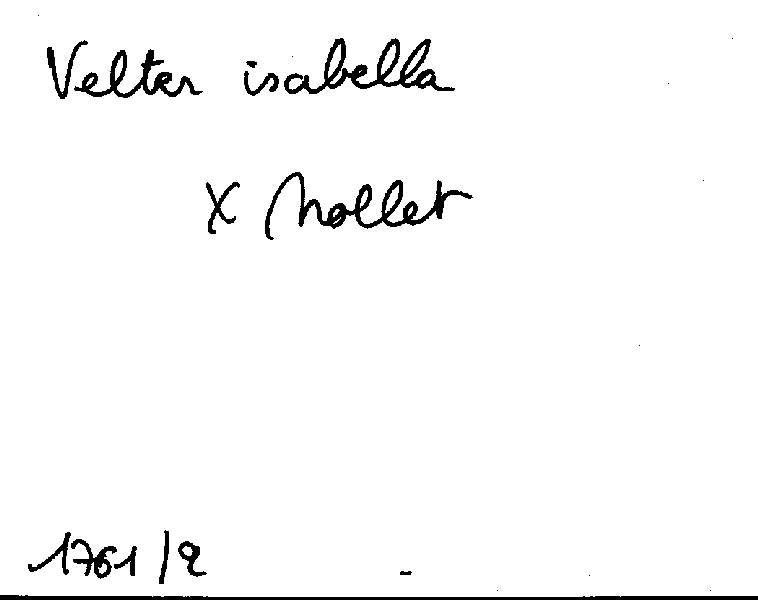 Velter isabella
x Mollet
1761/2